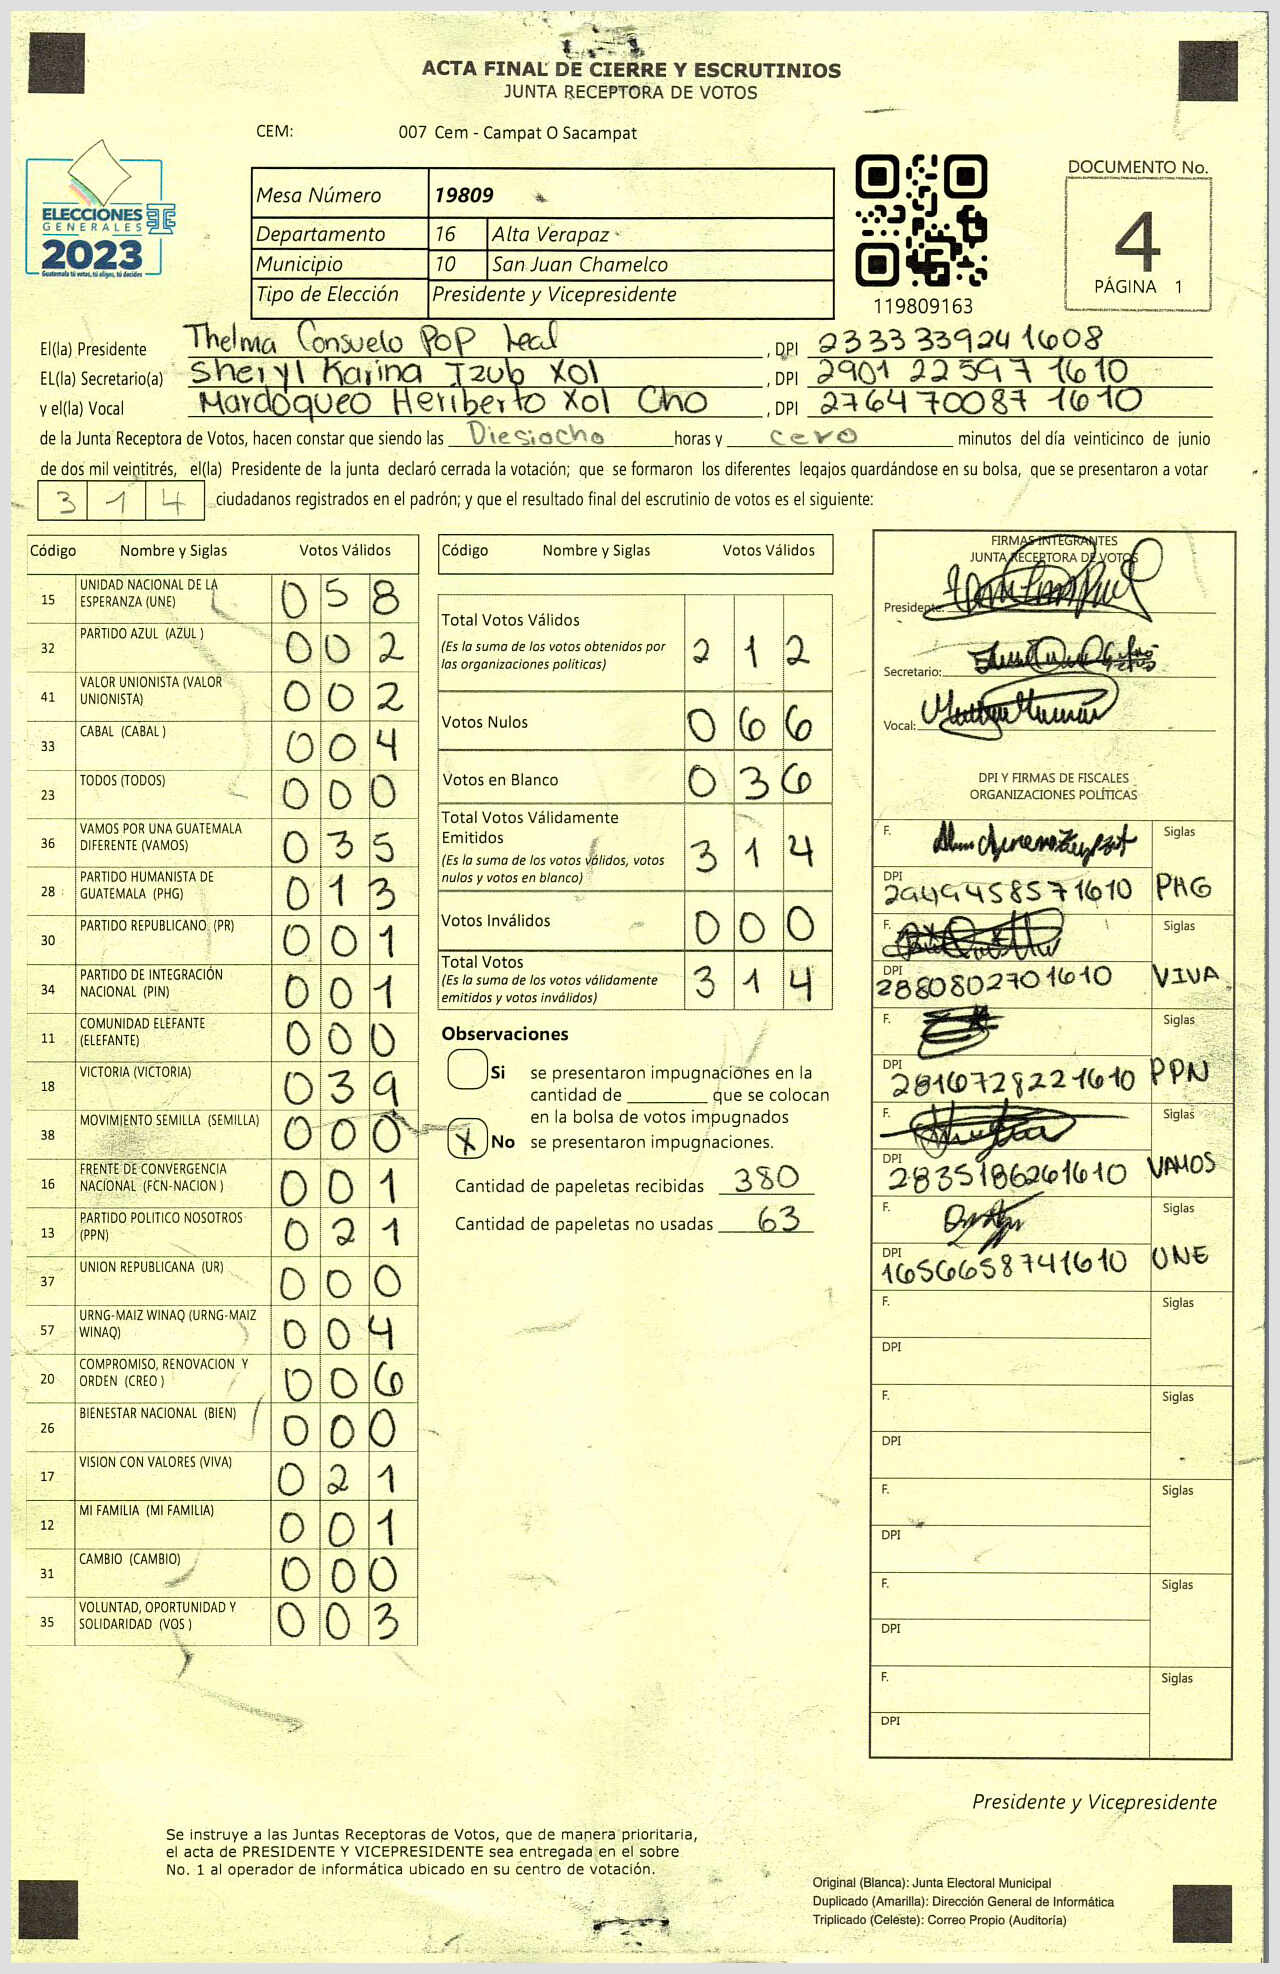 ACTA FINAL DE CIERRE Y ESCRUTINIOS
JUNTA RECEPTORA DE VOTOS
CEM: 007 Cem - Campat O Sacampat
ELECCIONES
GENERALES
2023
Guatemala tú votas, tú eliges, tú decides
Mesa Número 19809
Departamento 16 Alta Verapaz
Municipio 10 San Juan Chamelco
Tipo de Elección Presidente y Vicepresidente
119809163
DOCUMENTO No.
4
PÁGINA 1
El(la) Presidente Thelma Consuelo Pop Leal, DPI 2333 33924 1608
EL(la) Secretario(a) Sheryl Karina Tzub Xol, DPI 2901 22597 1610
y el(la) Vocal Mardoqueo Heriberto Xol Cho, DPI 2764 70087 1610
de la Junta Receptora de Votos, hacen constar que siendo las Diesiocho horas y cero minutos del día veinticinco de junio
de dos mil veintitrés, el(la) Presidente de la junta declaró cerrada la votación; que se formaron los diferentes legajos guardándose en su bolsa, que se presentaron a votar
3 1 4 ciudadanos registrados en el padrón; y que el resultado final del escrutinio de votos es el siguiente:
Código Nombre y Siglas Votos Válidos
15 UNIDAD NACIONAL DE LA ESPERANZA (UNE) 0 5 8
32 PARTIDO AZUL (AZUL ) 0 0 2
41 VALOR UNIONISTA (VALOR UNIONISTA) 0 0 2
33 CABAL (CABAL ) 0 0 4
23 TODOS (TODOS) 0 0 0
36 VAMOS POR UNA GUATEMALA DIFERENTE (VAMOS) 0 3 5
28 PARTIDO HUMANISTA DE GUATEMALA (PHG) 0 1 3
30 PARTIDO REPUBLICANO (PR) 0 0 1
34 PARTIDO DE INTEGRACIÓN NACIONAL (PIN) 0 0 1
11 COMUNIDAD ELEFANTE (ELEFANTE) 0 0 0
18 VICTORIA (VICTORIA) 0 3 9
38 MOVIMIENTO SEMILLA (SEMILLA) 0 0 0
16 FRENTE DE CONVERGENCIA NACIONAL (FCN-NACION ) 0 0 1
13 PARTIDO POLITICO NOSOTROS (PPN) 0 2 1
37 UNION REPUBLICANA (UR) 0 0 0
57 URNG-MAIZ WINAQ (URNG-MAIZ WINAQ) 0 0 4
20 COMPROMISO, RENOVACION Y ORDEN (CREO ) 0 0 6
26 BIENESTAR NACIONAL (BIEN) 0 0 0
17 VISION CON VALORES (VIVA) 0 2 1
12 MI FAMILIA (MI FAMILIA) 0 0 1
31 CAMBIO (CAMBIO) 0 0 0
35 VOLUNTAD, OPORTUNIDAD Y SOLIDARIDAD (VOS ) 0 0 3
Código Nombre y Siglas Votos Válidos
Total Votos Válidos 2 1 2
(Es la suma de los votos obtenidos por
las organizaciones políticas)
Votos Nulos 0 6 6
Votos en Blanco 0 3 6
Total Votos Válidamente
Emitidos 3 1 4
(Es la suma de los votos válidos, votos
nulos y votos en blanco)
Votos Inválidos 0 0 0
Total Votos 3 1 4
(Es la suma de los votos válidamente
emitidos y votos inválidos)
Observaciones
Si se presentaron impugnaciones en la
cantidad de ________ que se colocan
en la bolsa de votos impugnados
X No se presentaron impugnaciones.
Cantidad de papeletas recibidas 380
Cantidad de papeletas no usadas 63
FIRMAS INTEGRANTES
JUNTA RECEPTORA DE VOTOS
Presidente:
Secretario:
Vocal:
DPI Y FIRMAS DE FISCALES
ORGANIZACIONES POLÍTICAS
F. Siglas
DPI 2949458571610 PHG
F. Siglas
DPI 2880802701610 VIVA
F. Siglas
DPI 2816728221610 PPN
F. Siglas
DPI 2835186261610 VAMOS
F. Siglas
DPI 1656658741610 UNE
F. Siglas
DPI
F. Siglas
DPI
F. Siglas
DPI
F. Siglas
DPI
F. Siglas
DPI
Presidente y Vicepresidente
Se instruye a las Juntas Receptoras de Votos, que de manera prioritaria,
el acta de PRESIDENTE Y VICEPRESIDENTE sea entregada en el sobre
No. 1 al operador de informática ubicado en su centro de votación.
Original (Blanca): Junta Electoral Municipal
Duplicado (Amarilla): Dirección General de Informática
Triplicado (Celeste): Correo Propio (Auditoría)